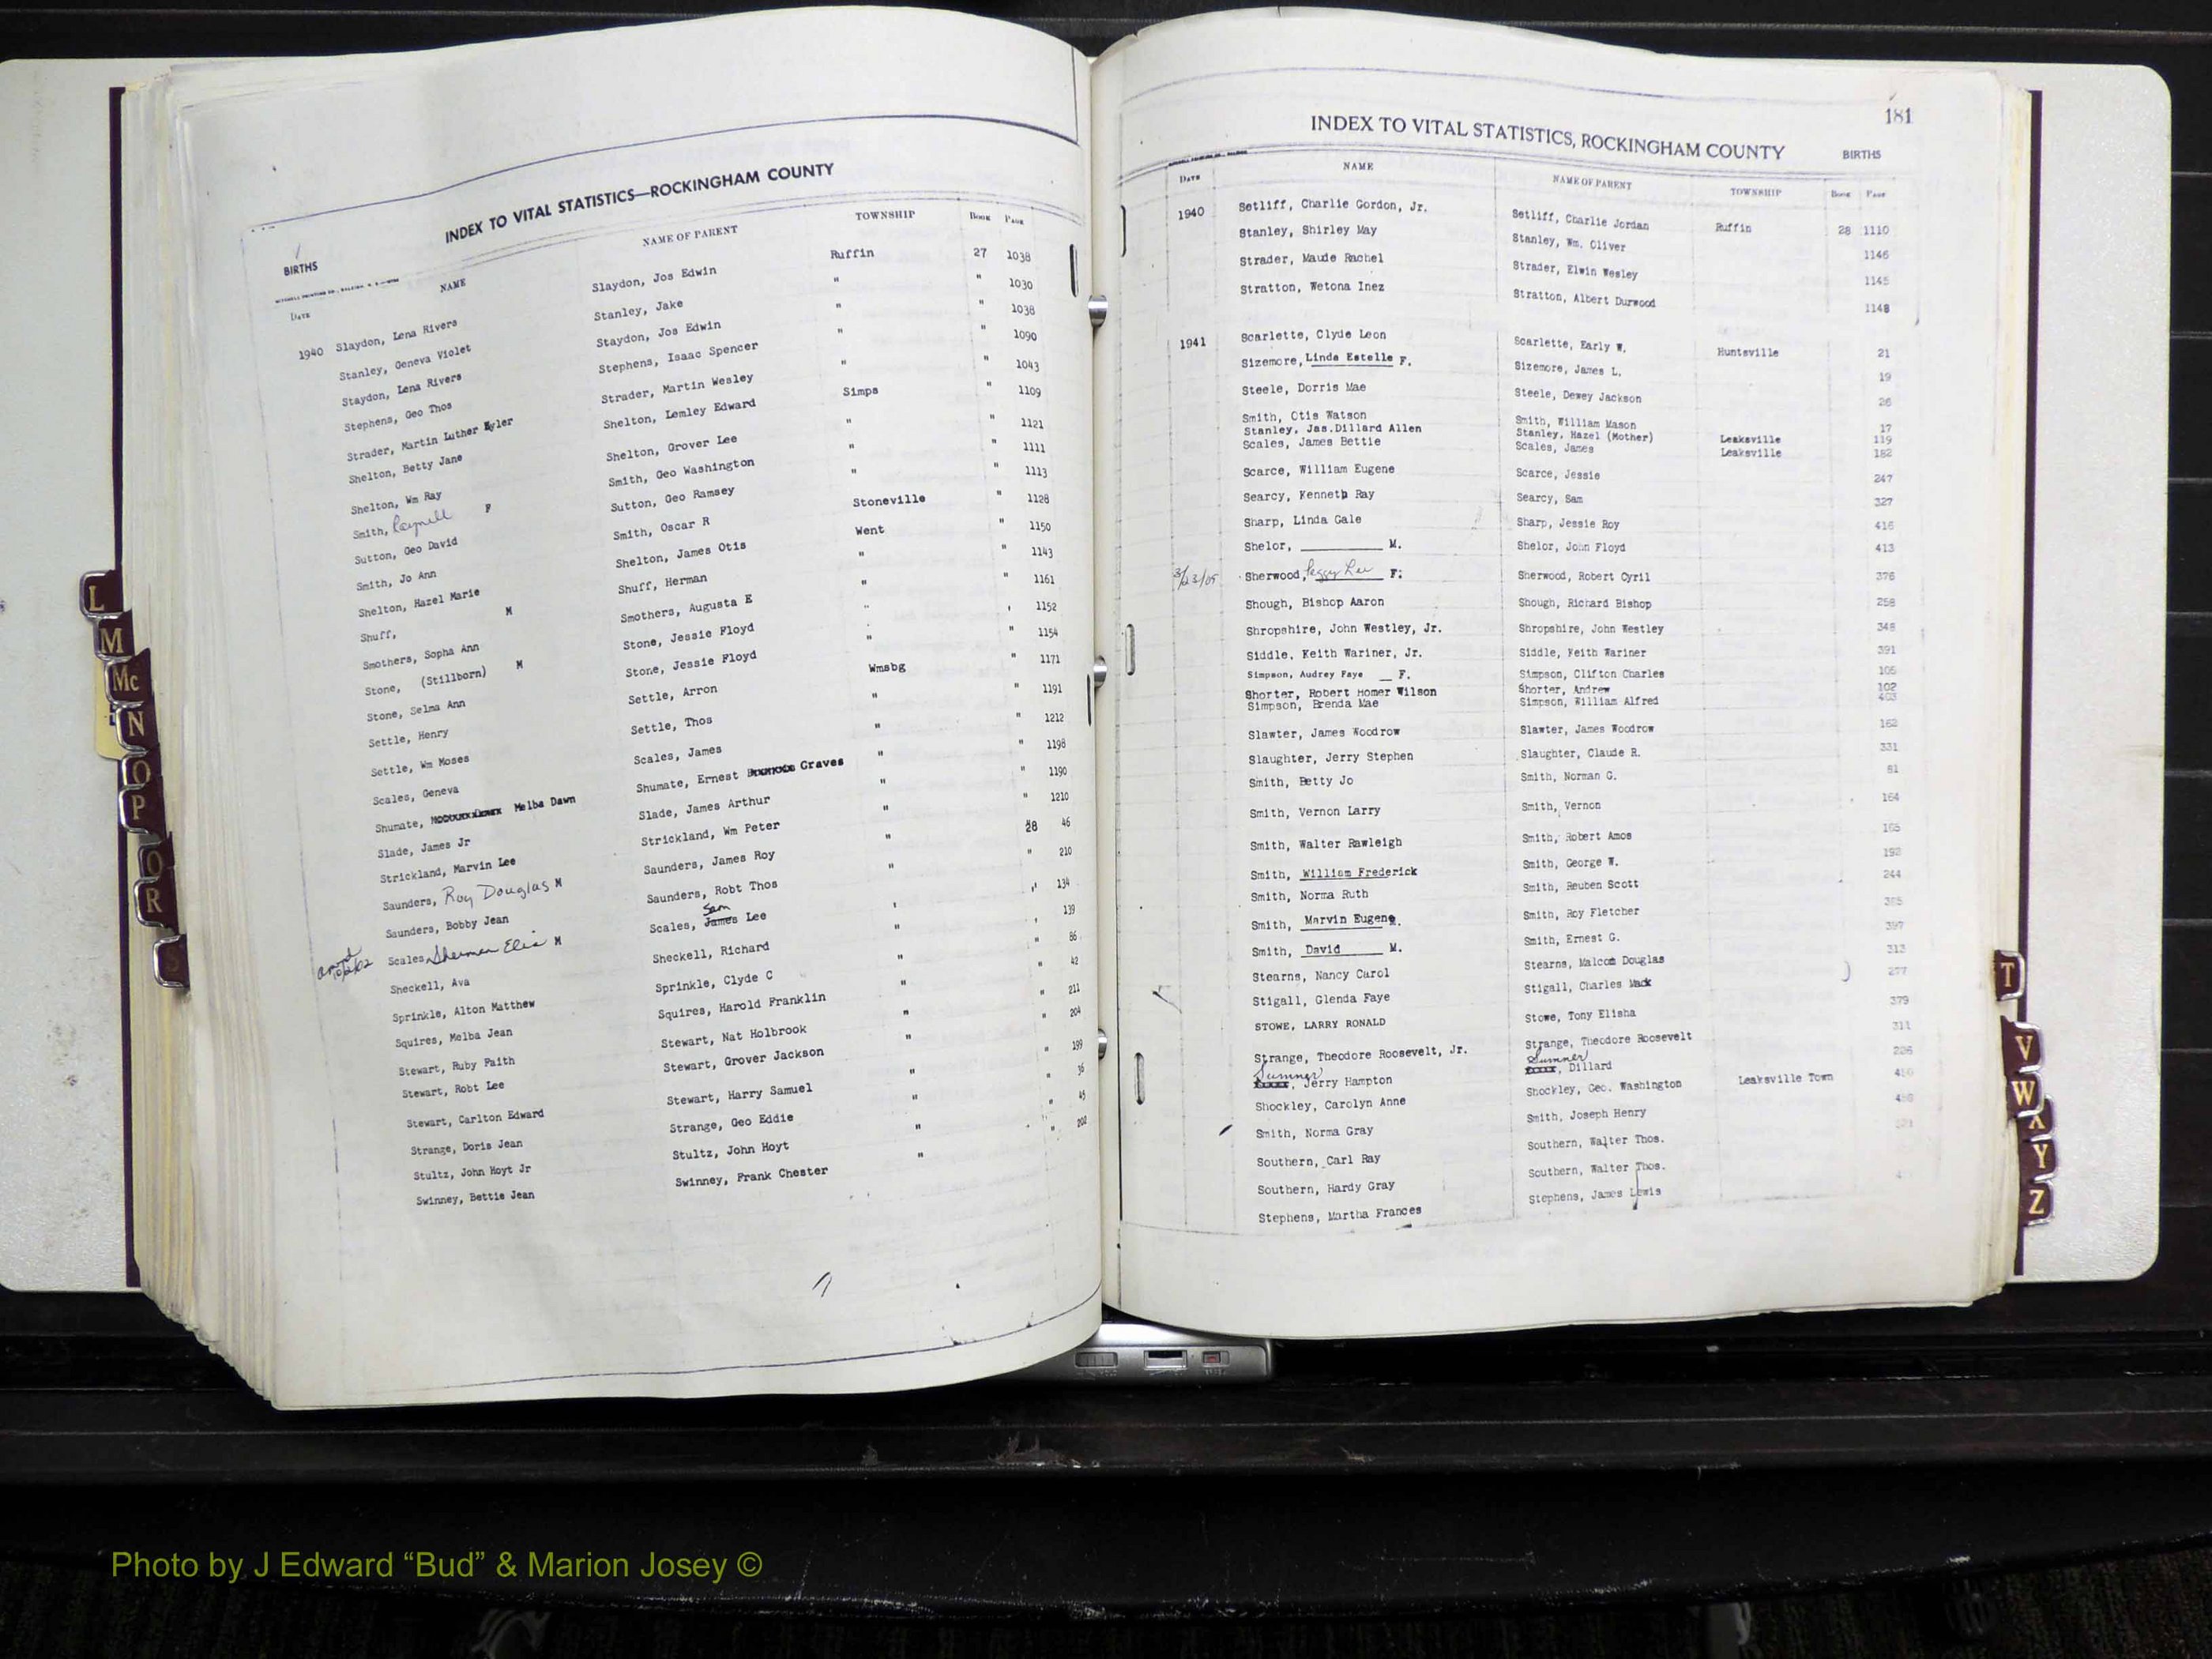 INDEX TO VITAL STATISTICS—ROCKINGHAM COUNTY
BIRTHS
DATE NAME NAME OF PARENT TOWNSHIP BOOK PAGE
1940 Slaydon, Lena Rivers Slaydon, Jos Edwin Ruffin 27 1038
Stanley, Geneva Violet Stanley, Jake " " 1030
Staydon, Lena Rivers Staydon, Jos Edwin " " 1038
Stephens, Geo Thos Stephens, Isaac Spencer " " 1090
Strader, Martin Luther Strader, Martin Wesley " " 1043
Shelton, Betty Jane Shelton, Lemley Edward Simps " 1109
Shelton, Wm Ray Shelton, Grover Lee " " 1121
Smith, F Smith, Geo Washington " " 1111
Sutton, Geo David Sutton, Geo Ramsey " " 1113
Smith, Jo Ann Smith, Oscar R Stoneville " 1128
Shelton, Hazel Marie Shelton, James Otis Went " 1150
Shuff, M Shuff, Herman " " 1143
Smothers, Sopha Ann Smothers, Augusta E " " 1161
Stone, (Stillborn) M Stone, Jessie Floyd " 1152
Stone, Selma Ann Stone, Jessie Floyd " " 1154
Settle, Henry Settle, Arron Wmsbg " 1171
Settle, Wm Moses Settle, Thos " " 1191
Scales, Geneva Scales, James " " 1212
Shumate, Melba Dawn Shumate, Ernest Graves " " 1198
Slade, James Jr Slade, James Arthur " " 1190
Strickland, Marvin Lee Strickland, Wm Peter " " 1210
Saunders, Roy Douglas M Saunders, James Roy " 28 46
Saunders, Bobby Jean Saunders, Robt Thos " " 210
Scales, Sherman Elis M Scales, James Sam Lee 134
Sheckell, Ava Sheckell, Richard " 139
Sprinkle, Alton Matthew Sprinkle, Clyde C " " 86
Squires, Melba Jean Squires, Harold Franklin " " 42
Stewart, Ruby Faith Stewart, Nat Holbrook " " 211
Stewart, Robt Lee Stewart, Grover Jackson " " 204
Stewart, Carlton Edward Stewart, Harry Samuel " " 199
Strange, Doris Jean Strange, Geo Eddie " " 36
Stultz, John Hoyt Jr Stultz, John Hoyt " " 45
Swinney, Bettie Jean Swinney, Frank Chester " " 202
181
INDEX TO VITAL STATISTICS, ROCKINGHAM COUNTY
BIRTHS
DATE NAME NAME OF PARENT TOWNSHIP BOOK PAGE
1940 Setliff, Charlie Gordon, Jr. Setliff, Charlie Jordan Ruffin 28 1110
Stanley, Shirley May Stanley, Wm. Oliver 1146
Strader, Maude Rachel Strader, Elwin Wesley 1145
Stratton, Wetona Inez Stratton, Albert Durwood 1148
1941 Scarlette, Clyde Leon Scarlette, Early W. Huntsville 21
Sizemore, Linda Estelle F. Sizemore, James L. 19
Steele, Dorris Mae Steele, Dewey Jackson 26
Smith, Otis Watson Smith, William Mason 17
Stanley, Jas.Dillard Allen Stanley, Hazel (Mother) Leaksville 119
Scales, James Bettie Scales, James Leaksville 182
Scarce, William Eugene Scarce, Jessie 247
Searcy, Kenneth Ray Searcy, Sam 327
Sharp, Linda Gale Sharp, Jessie Roy 416
Shelor, M. Shelor, John Floyd 413
Sherwood, Peggy Lee F. Sherwood, Robert Cyril 376
Shough, Bishop Aaron Shough, Richard Bishop 258
Shropshire, John Westley, Jr. Shropshire, John Westley 348
Siddle, Keith Wariner, Jr. Siddle, Keith Wariner 391
Simpson, Audrey Faye F. Simpson, Clifton Charles 105
Shorter, Robert Homer Wilson Shorter, Andrew 102
Simpson, Brenda Mae Simpson, William Alfred 403
Slawter, James Woodrow Slawter, James Woodrow 162
Slaughter, Jerry Stephen Slaughter, Claude R. 331
Smith, Betty Jo Smith, Norman G. 81
Smith, Vernon Larry Smith, Vernon 164
Smith, Walter Rawleigh Smith, Robert Amos 165
Smith, William Frederick Smith, George W. 192
Smith, Norma Ruth Smith, Reuben Scott 244
Smith, Marvin Eugene. Smith, Roy Fletcher
Smith, David M. Smith, Ernest G. 397
Stearns, Nancy Carol Stearns, Malcom Douglas 313
Stigall, Glenda Faye Stigall, Charles Mack 277
STOWE, LARRY RONALD Stowe, Tony Elisha 379
Strange, Theodore Roosevelt, Jr. Strange, Theodore Roosevelt 311
Sumner, Jerry Hampton Sumner, Dillard
Shockley, Carolyn Anne Shockley, Geo. Washington Leaksville Town
Smith, Norma Gray Smith, Joseph Henry
Southern, Carl Ray Southern, Walter Thos.
Southern, Hardy Gray Southern, Walter Thos.
Stephens, Martha Frances Stephens, James Lewis
L
M
Mc
N
O
P
Q
R
S
T
V
W
X
Y
Z
Photo by J Edward “Bud” & Marion Josey ©